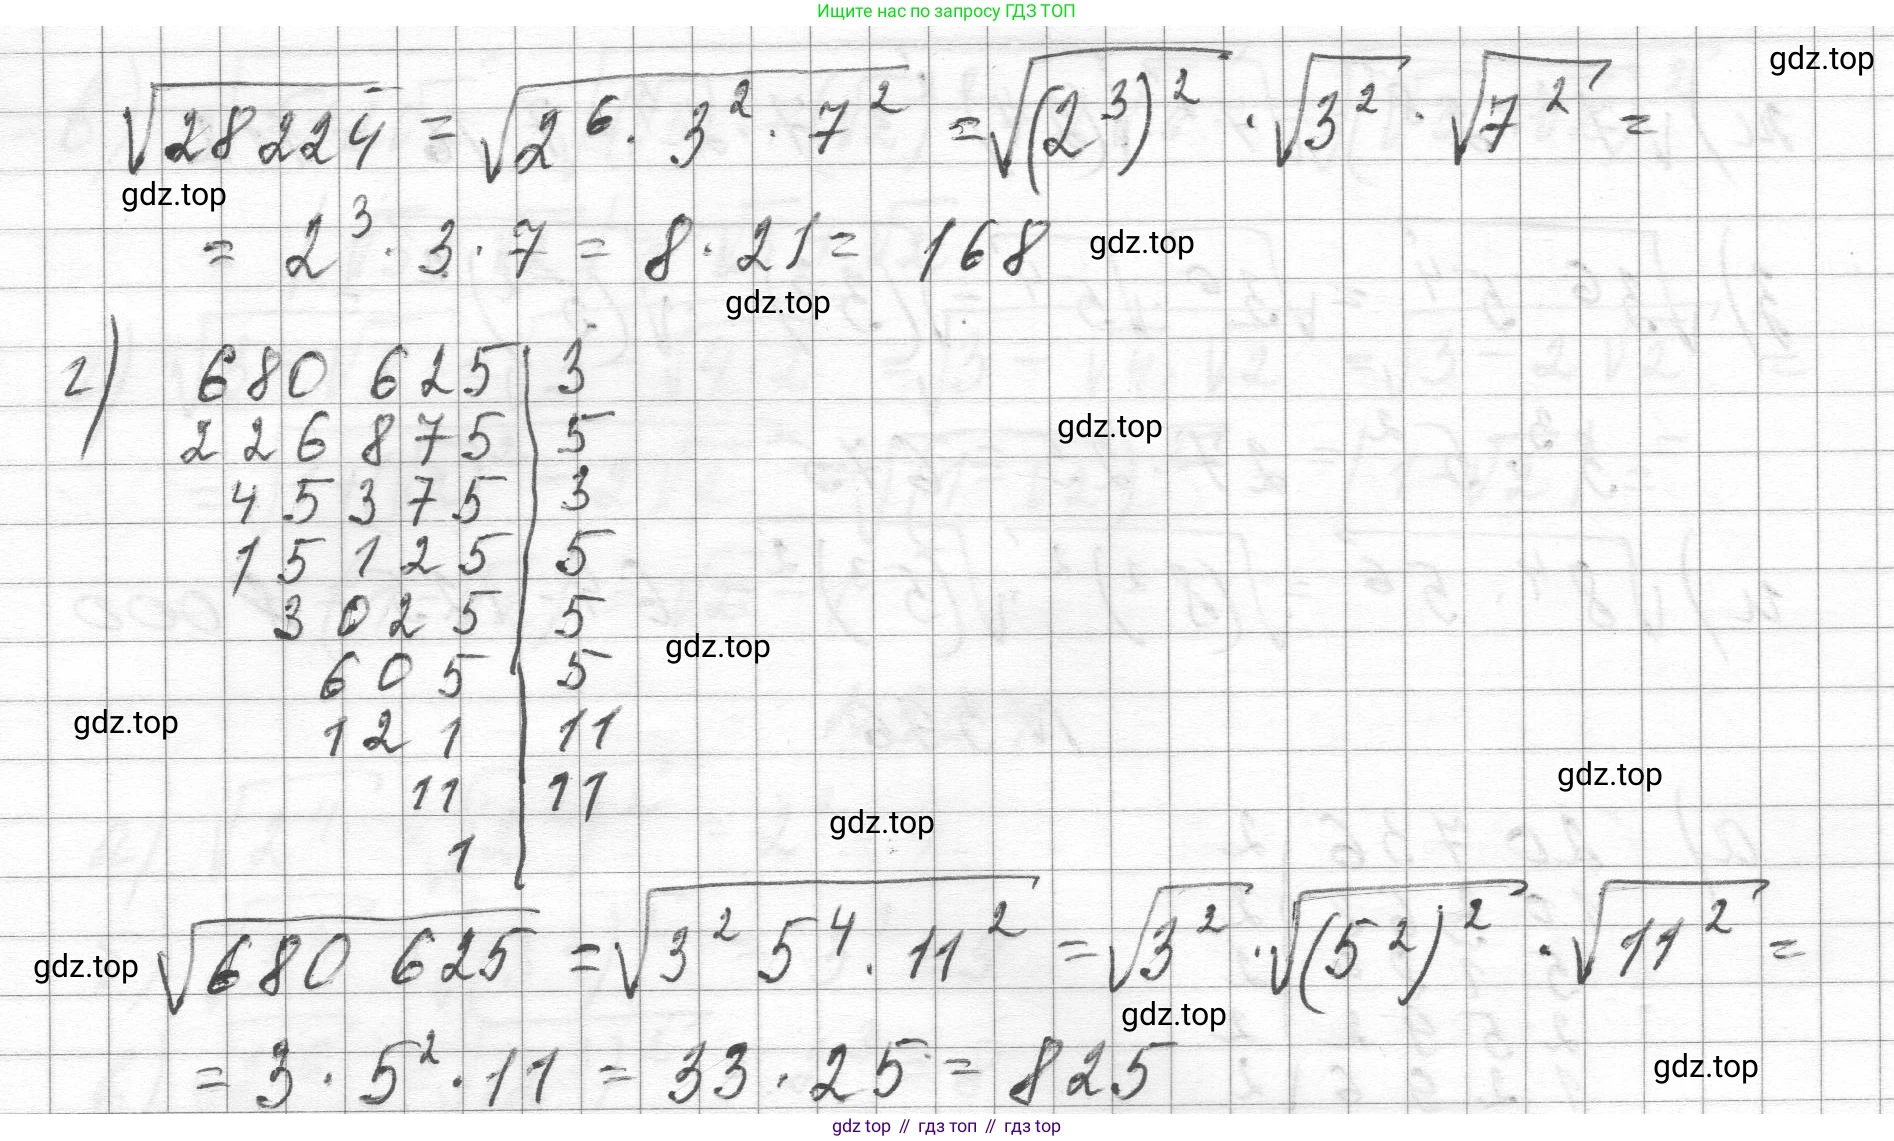 Ищите нас по запросу ГДЗ ТОП
gdz.top
√28224 = √2⁶ · 3² · 7² = √(2³)² · √3² · √7² =
gdz.top
= 2³ · 3 · 7 = 8 · 21 = 168 gdz.top
gdz.top
г) 680 625 | 3
226875 | 5 gdz.top
45375 | 3
15125 | 5
3025 | 5
605 | 5 gdz.top
gdz.top 121 | 11
11 | 11 gdz.top
1 | gdz.top
gdz.top √680 625 = √3² 5⁴ · 11² = √3² · √(5²)² · √11² =
gdz.top
= 3 · 5² · 11 = 33 · 25 = 825 gdz.top
gdz top // гдз топ // gdz top